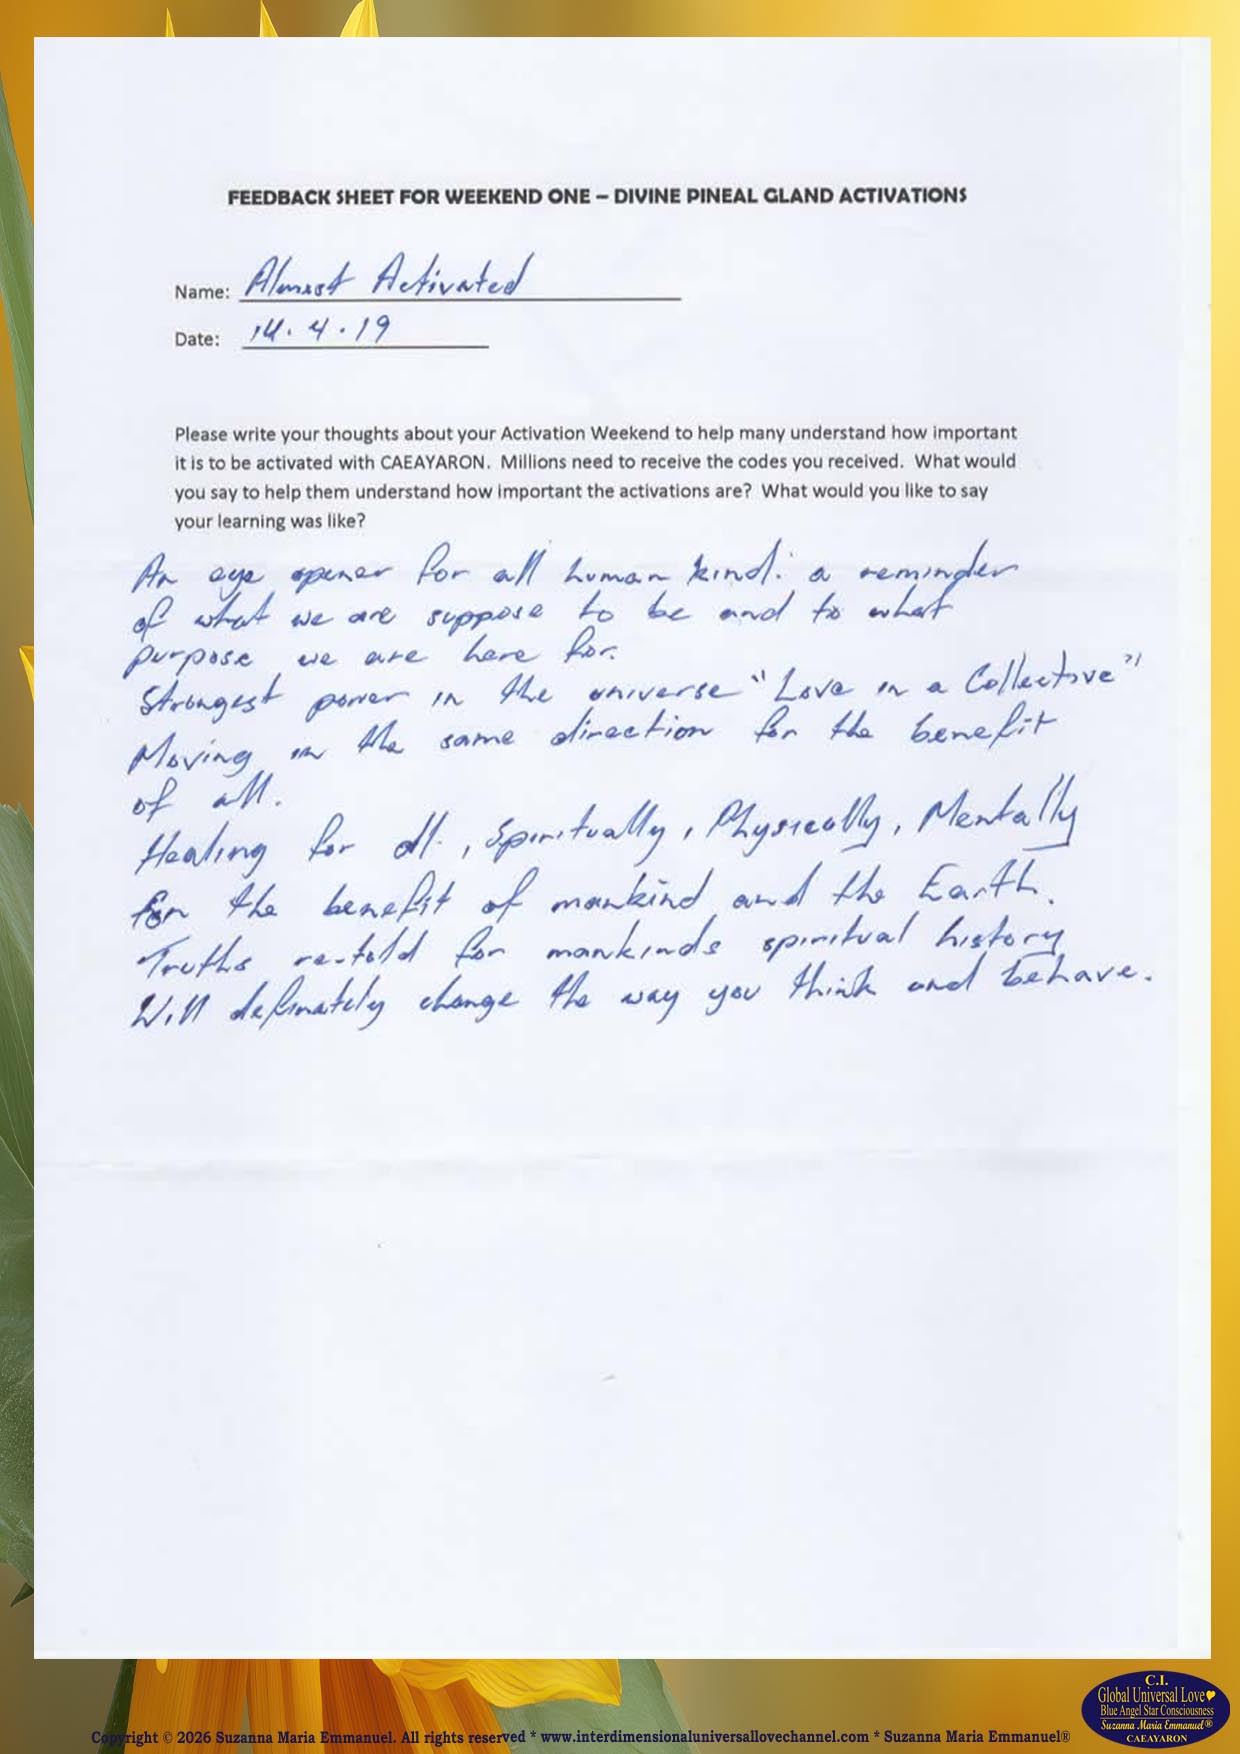 FEEDBACK SHEET FOR WEEKEND ONE – DIVINE PINEAL GLAND ACTIVATIONS
Name: Almost Activated
Date: 14.4.19
Please write your thoughts about your Activation Weekend to help many understand how important
it is to be activated with CAEAYARON. Millions need to receive the codes you received. What would
you say to help them understand how important the activations are? What would you like to say
your learning was like?
An eye opener for all human kind. a reminder
of what we are suppose to be and to what
purpose we are here for.
Strongest power in the universe "Love in a Collective"
Moving in the same direction for the benefit
of all.
Healing for all, Spiritually, Physically, Mentally
for the benefit of mankind and the Earth.
Truths re-told for mankinds spiritual history
Will definately change the way you think and behave.
C.I.
Global Universal Love
Blue Angel Star Consciousness
Suzanna Maria Emmanuel®
CAEAYARON
Copyright © 2026 Suzanna Maria Emmanuel. All rights reserved * www.interdimensionaluniversallovechannel.com * Suzanna Maria Emmanuel®